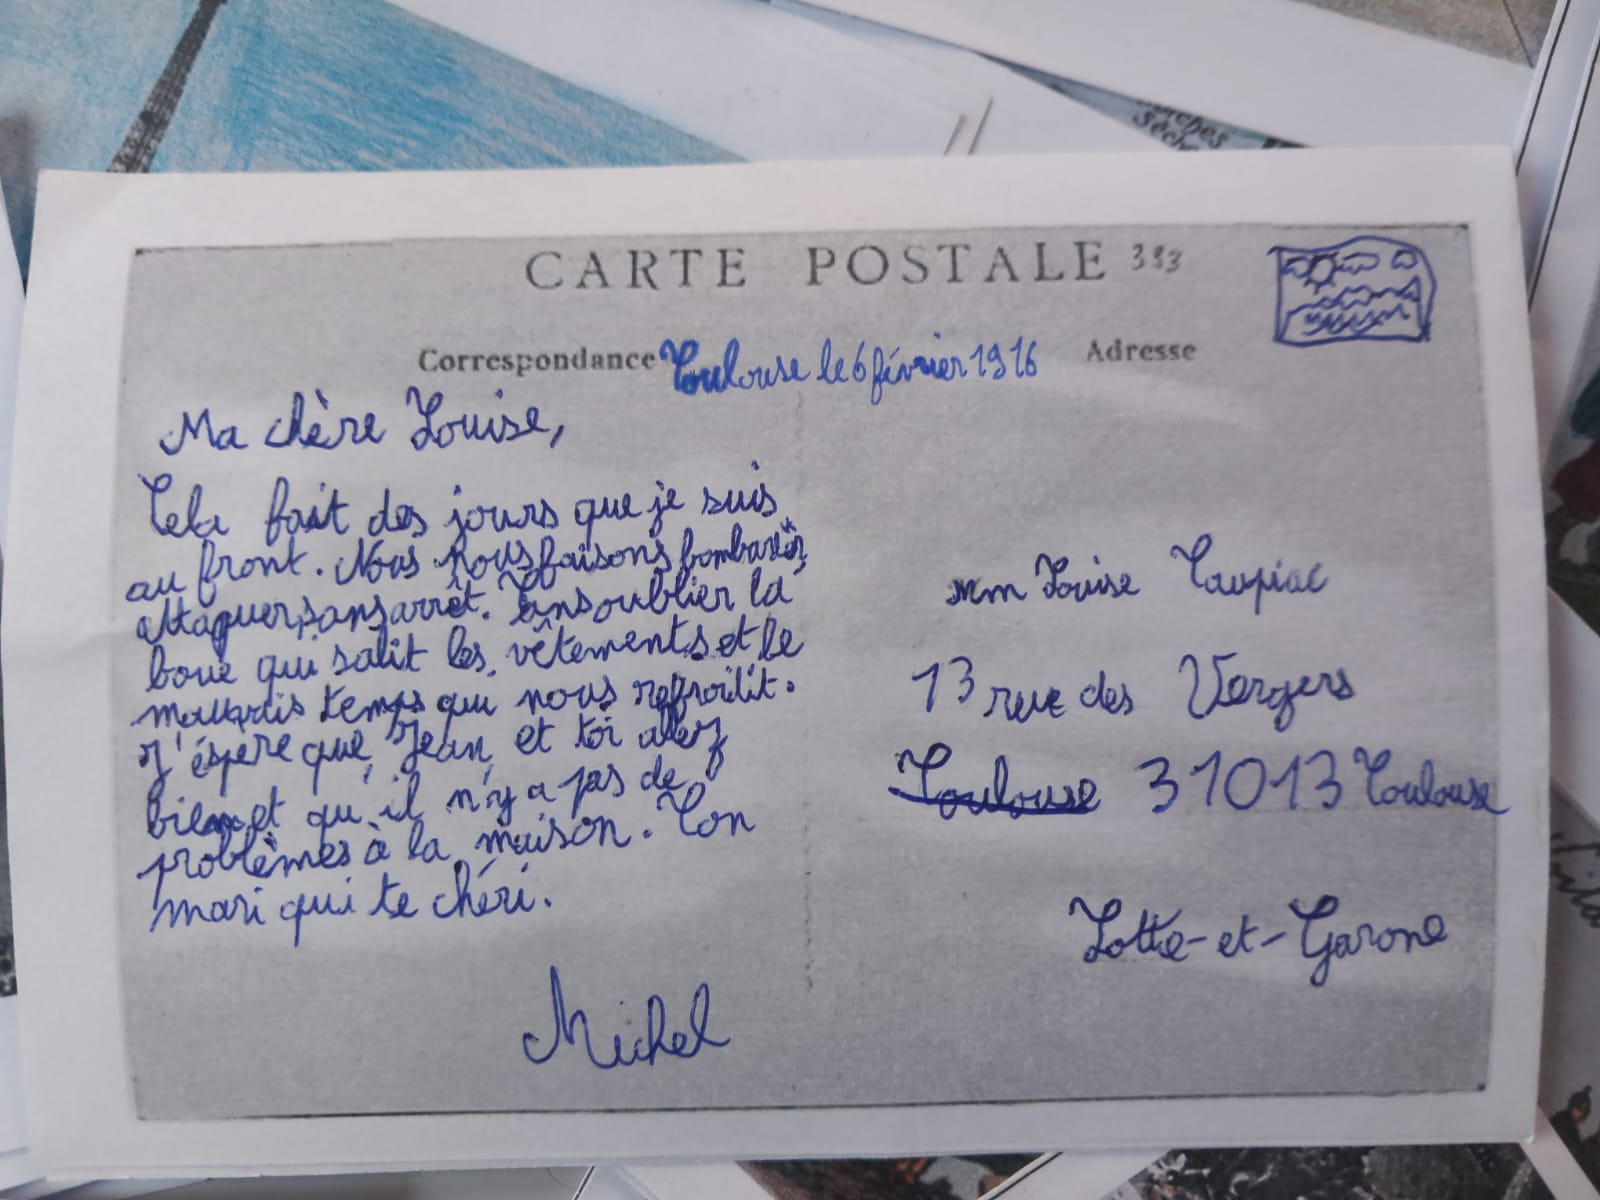 CARTE POSTALE 393
Correspondance
Toulouse le 6 février 1916
Adresse
Ma chère Louise,
Cela fait des jours que je suis
au front. Nous nous faisons bombarder,
attaquer sans arrêt. Sans oublier la
boue qui salit les vêtements et le
mauvais temps qui nous refroidit.
J'éspère que Jean et toi allez
bien et qu'il n'y a pas de
problèmes à la maison. Ton
mari qui te chéri.
Michel
mm Louise Taupiac
13 rue des Vergers
Toulouse 31013 Toulouse
Lotte-et-Garone